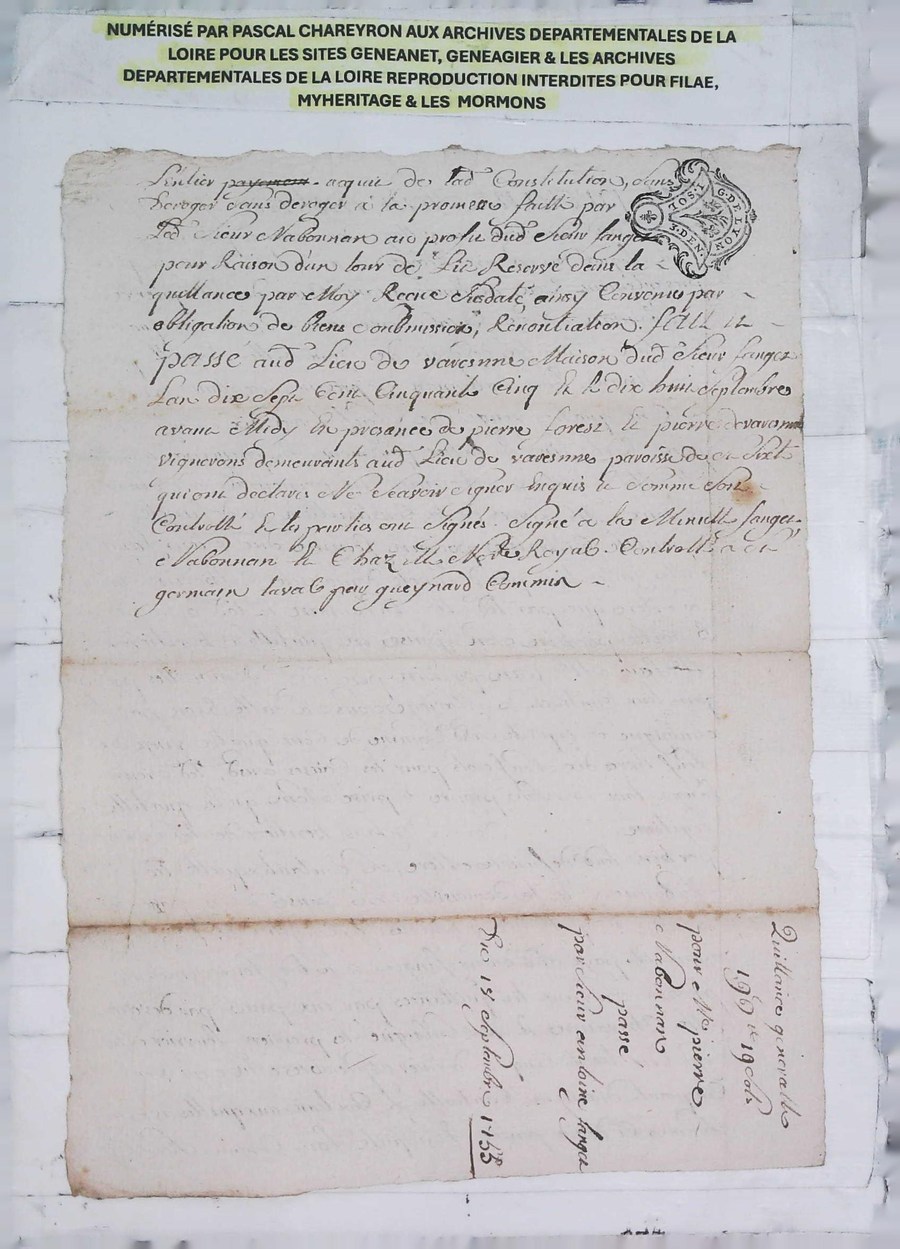 NUMÉRISÉ PAR PASCAL CHAREYRON AUX ARCHIVES DEPARTEMENTALES DE LA
LOIRE POUR LES SITES GENEANET, GENEAGIER & LES ARCHIVES
DEPARTEMENTALES DE LA LOIRE REPRODUCTION INTERDITES POUR FILAE,
MYHERITAGE & LES MORMONS
L'entier payement acquit de lad Constitution, sans
deroger sans deroger à la promesse faitte par
Led Sieur Nabonnan au profit dud Sieur langet
pour Raison d'un tour de Lit Reservé dans la
quittance par Moy Recue susdate, ainsy Convenu par
obligation de biens soubmission, Renontiation. fait et
passé aud Lieu de varenne Maison dud Sieur langet
Lan dix Sept Cent Cinquante Cinq Et le dix huit Septembre
avant Midy En presance de pierre forest Et pierre devarenne
vignerons demeurants aud Lieu de varenne paroisse de st Sixt
qui ont declaré Ne sçavoir signer Enquis et sommé Sont
Controllé Et les parties ont Signés. Signé a la Minutte langet
Nabonnan Et Chazelle Nore Royal. Controllé a st
germain laval par gueynard Commis
G. DE LYON
3. DEN.
Quittance generalle
196 lt 19 sols
pour Me pierre
Nabonnan
passé
par Sieur antoine langet
Du 18 Septembre 1755